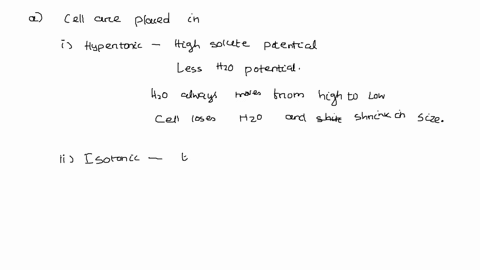 a) Cell are placed in
i) Hypertonic — High solute potential
Less H2O potential.
H2O always moles from high to low
Cell loses H2O and shrink in size.
ii) Isotonic — t